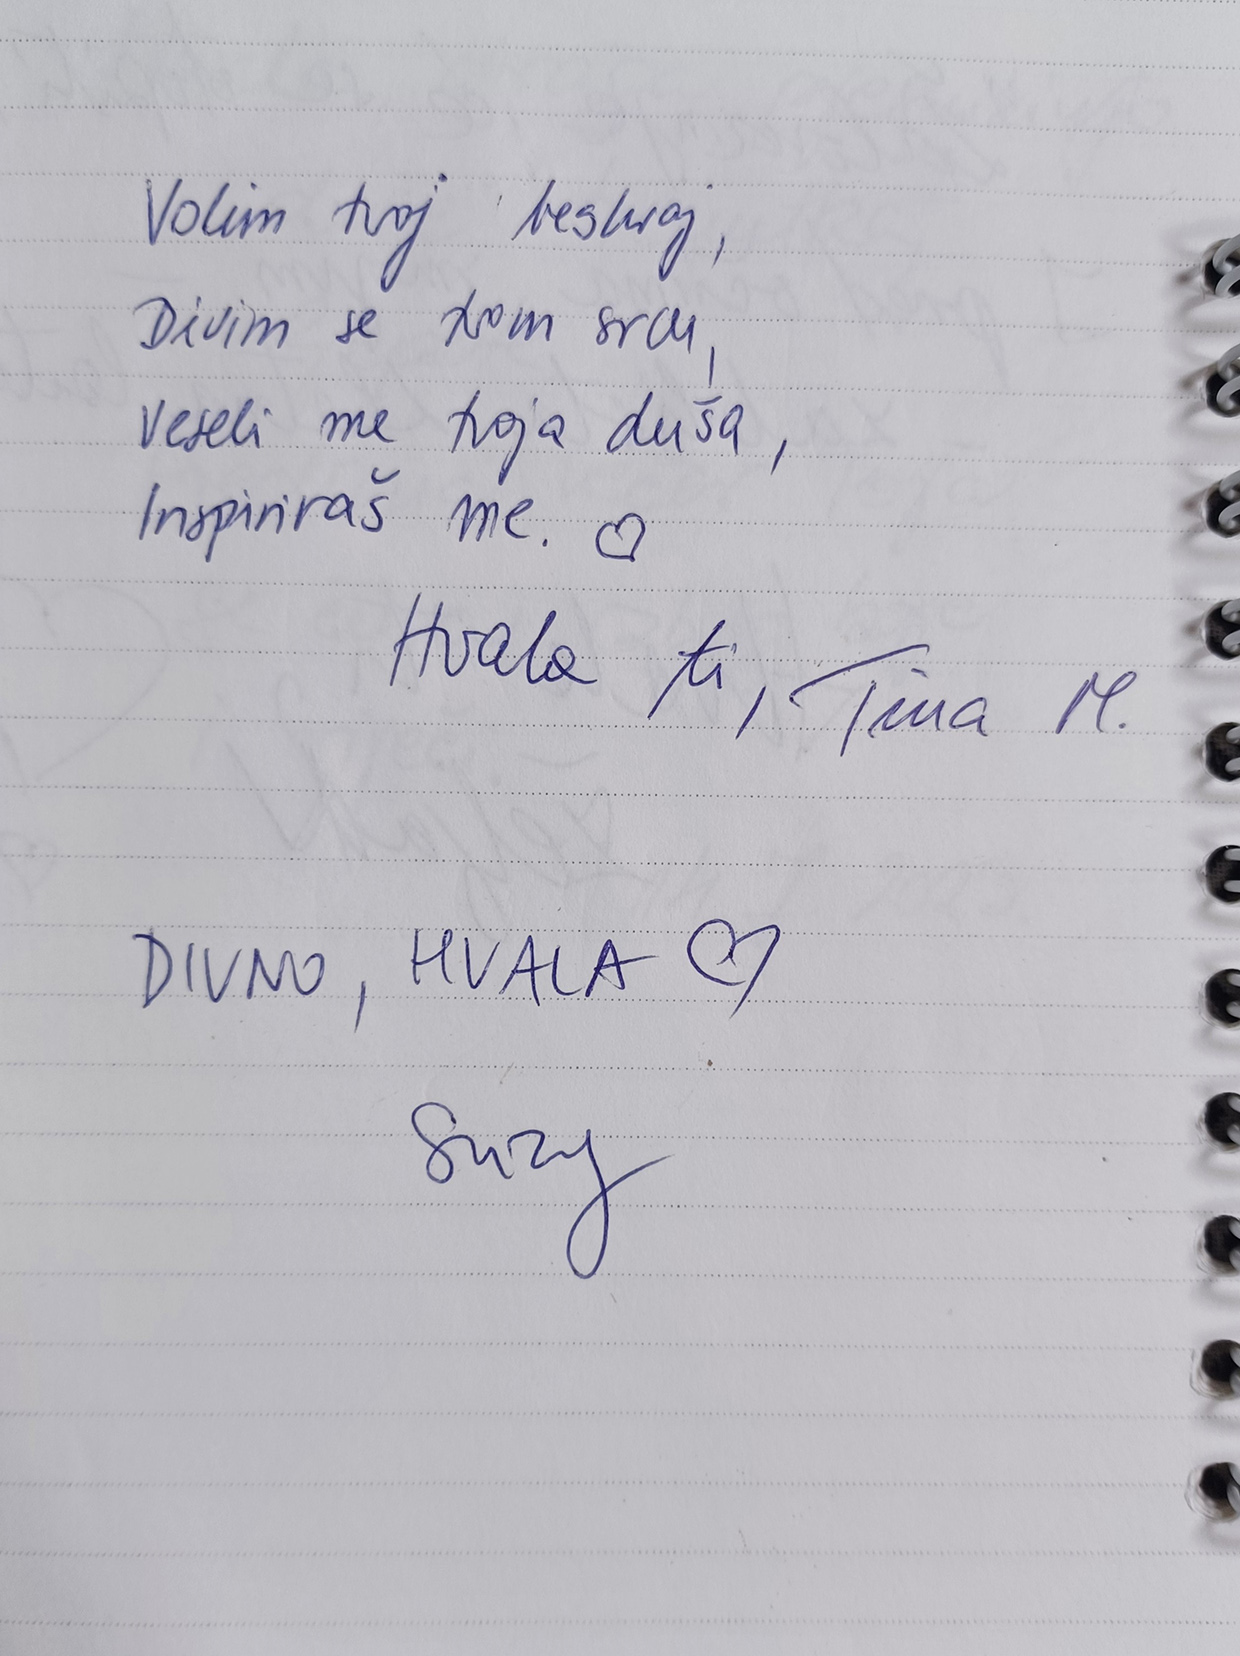 Volim tvoj beskraj,
Divim se tvom srcu,
Veseli me tvoja duša,
Inspiriraš me. ♡
Hvala ti, Tina M.
DIVNO, HVALA ♡
Suzy